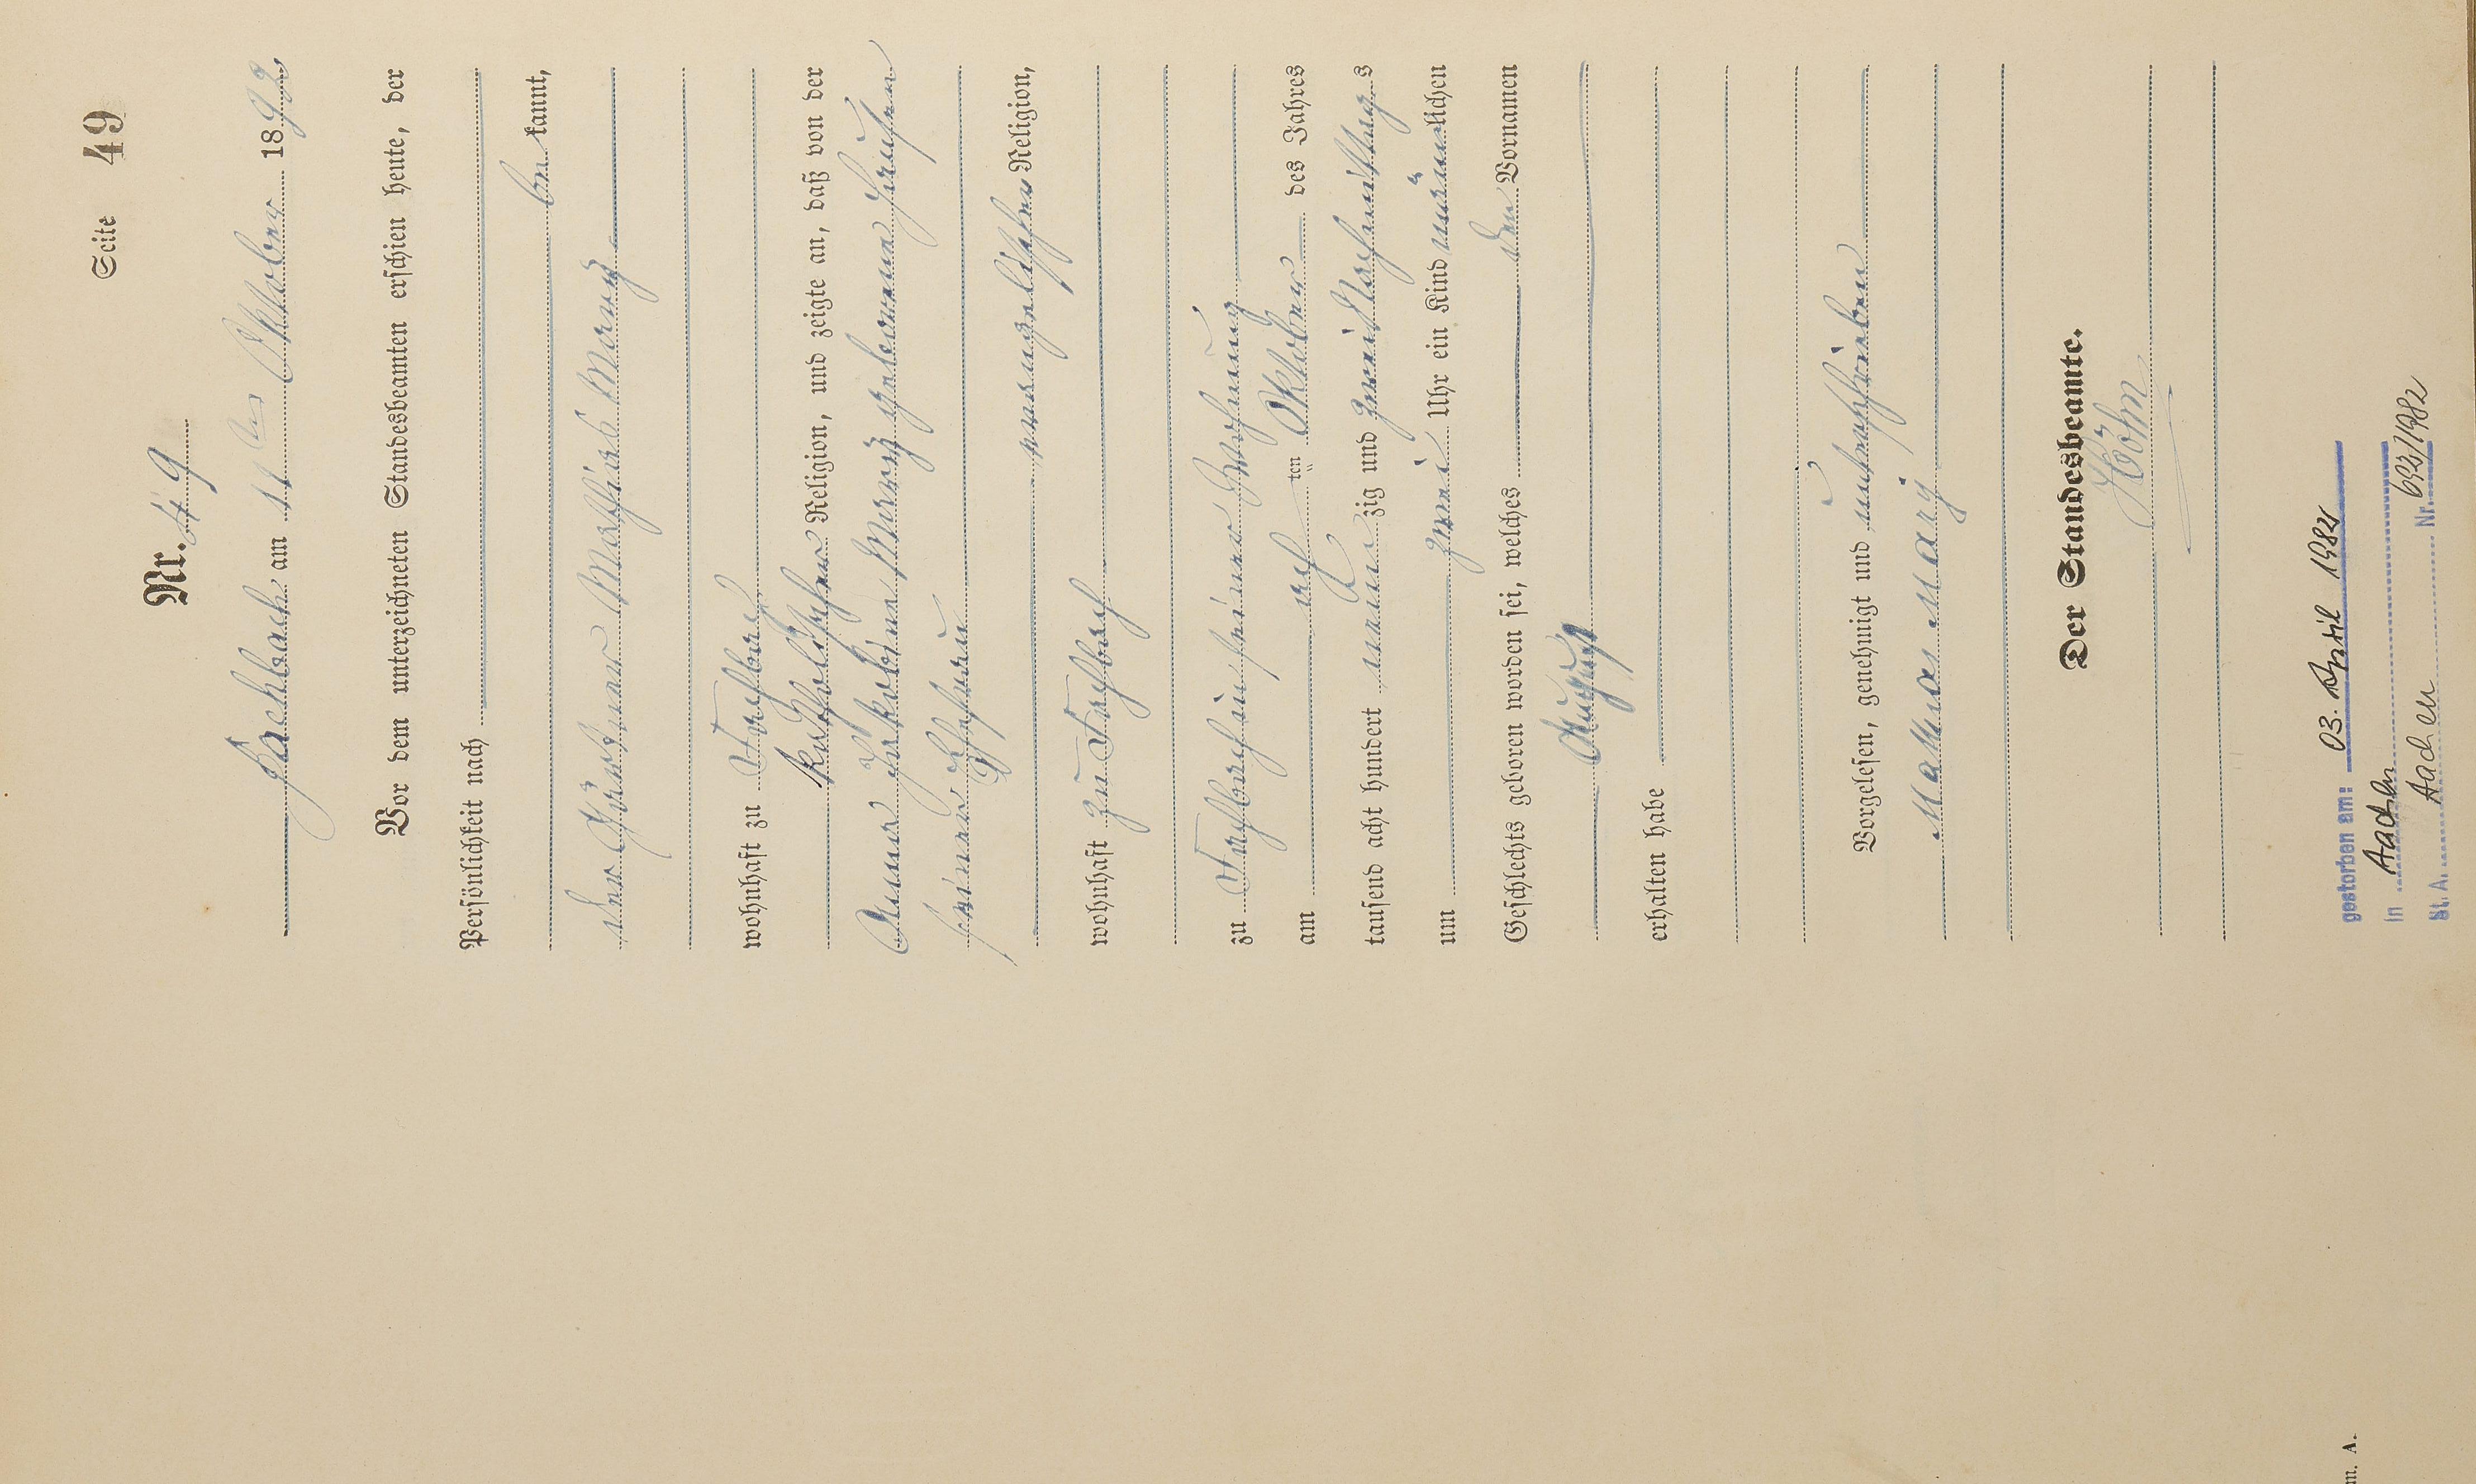 Seite 49
Nr. 49
Fachbach am 11ten Oktober 1892
Vor dem unterzeichneten Standesbeamten erschien heute, der
Persönlichkeit nach
be kannt,
der Gärtner Mathias Marx
wohnhaft zu Fachbach
katholischer Religion, und zeigte an, daß von der
Anna Jakobine Marx geborenen
seiner Ehefrau
evangelischer Religion,
wohnhaft zu Fachbach
zu Fachbach in seiner Wohnung
am ten Oktober des Jahres
tausend acht hundert neun zig und zwei Nachmittags
um zwei Uhr ein Kind männlichen
Geschlechts geboren worden sei, welches den Vornamen
August
erhalten habe
Vorgelesen, genehmigt und unterschrieben
Der Standesbeamte.
Höhn
gestorben am: 03. April 1982
in Aachen
St. A. Aachen Nr. 693/1982
m. A.